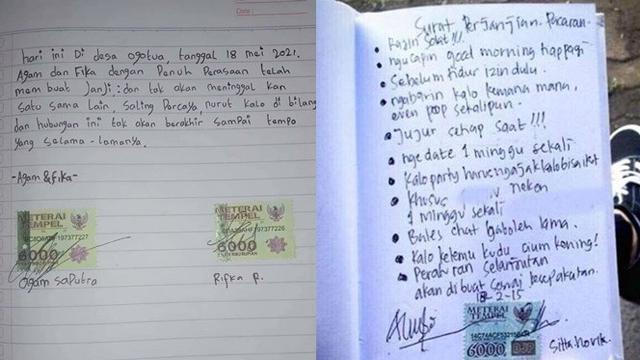 Date :
hari ini Di desa ogotua, tanggal 18 mei 2021.
Agam dan Fika dengan Penuh Perasaan telah
membuat Janji : dan tak akan meninggal kan
satu sama lain, saling Percaya, nurut kalo di bilang
dan hubungan ini tak akan berakhir sampai tempo
yang selama - lamanya.
-Agam & Fika-
METERAI
TEMPEL
197377227
6000
Agam saPutra
METERAI
TEMPEL
197377226
6000
Rifka R.
Surat Perjanjian Pacaran.
• Rajin Solat!!!
• ngucapin good morning tiap pagi
• Sebelum tidur izin dulu.
• ngabarin kalo kemana mana,
even poop sekalipun.
• Jujur setiap saat!!!
• ngedate 1 minggu sekali
• kalo party harus ngajak kalo bisa ikut
• Khusus nekon
1 minggu sekali
• Bales chat gaboleh lama.
• Kalo ketemu kudu cium kening!
• Peraturan selanjutnya
akan dibuat sesuai kesepakatan.
18-2-15
METERAI
TEMPEL
6000
Sitta Novita